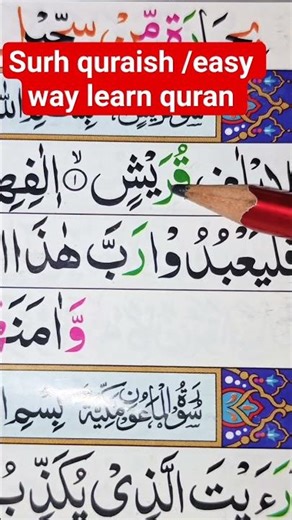 مِّنْ
Surh quraish /easy
way learn quran
قُرَيْشٍ ۙ۝۱ اٖلٰفِهِ
فَلْيَعْبُدُوْا رَبَّ هٰذَا
وَّاٰمَنَ
سُوْرَةُ الْمَاعُوْنِ مَكِّيَّةٌ بِسْمِ
رَءَيْتَ الَّذِيْ يُكَذِّبُ